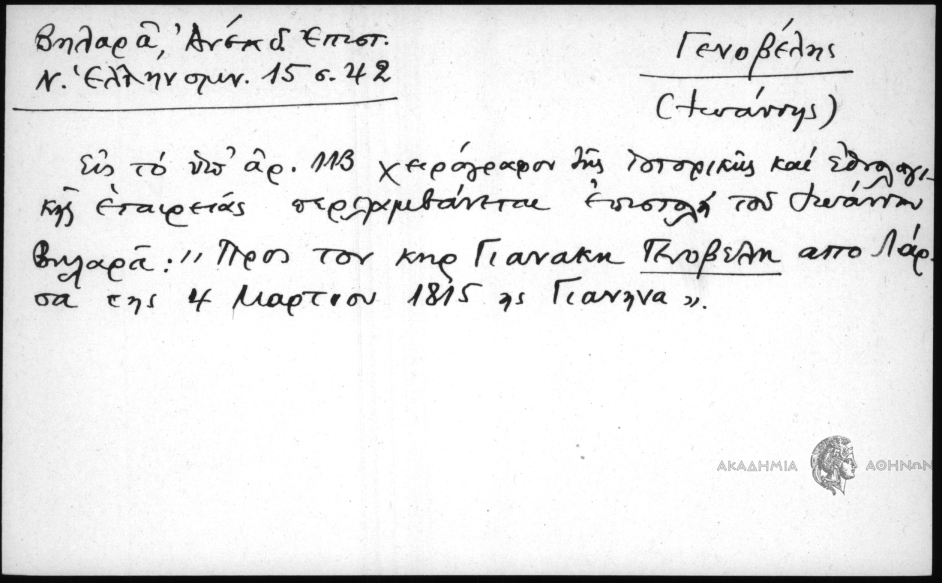 Βηλαρᾶ, Ἀνέκδ Ἐπιστ.
Ν. Ἑλληνομν. 15 σ. 42
Γενοβέλης
(Ἰωάννης)
Εἰς τό ὑπ' ἀρ. 113 χειρόγραφον τῆς Ἱστορικῆς καί Ἐθνολογι-
κῆς Ἑταιρείας περιλαμβάνεται ἐπιστολή τοῦ Ἰωάννου
Βηλαρᾶ: "Προς τον κηρ Γιανακη Γενοβελη απο Λάρ-
σα της 4 Μαρτιου 1815 ης Γιανηνα".
ΑΚΑΔΗΜΙΑ ΑΘΗΝΩΝ